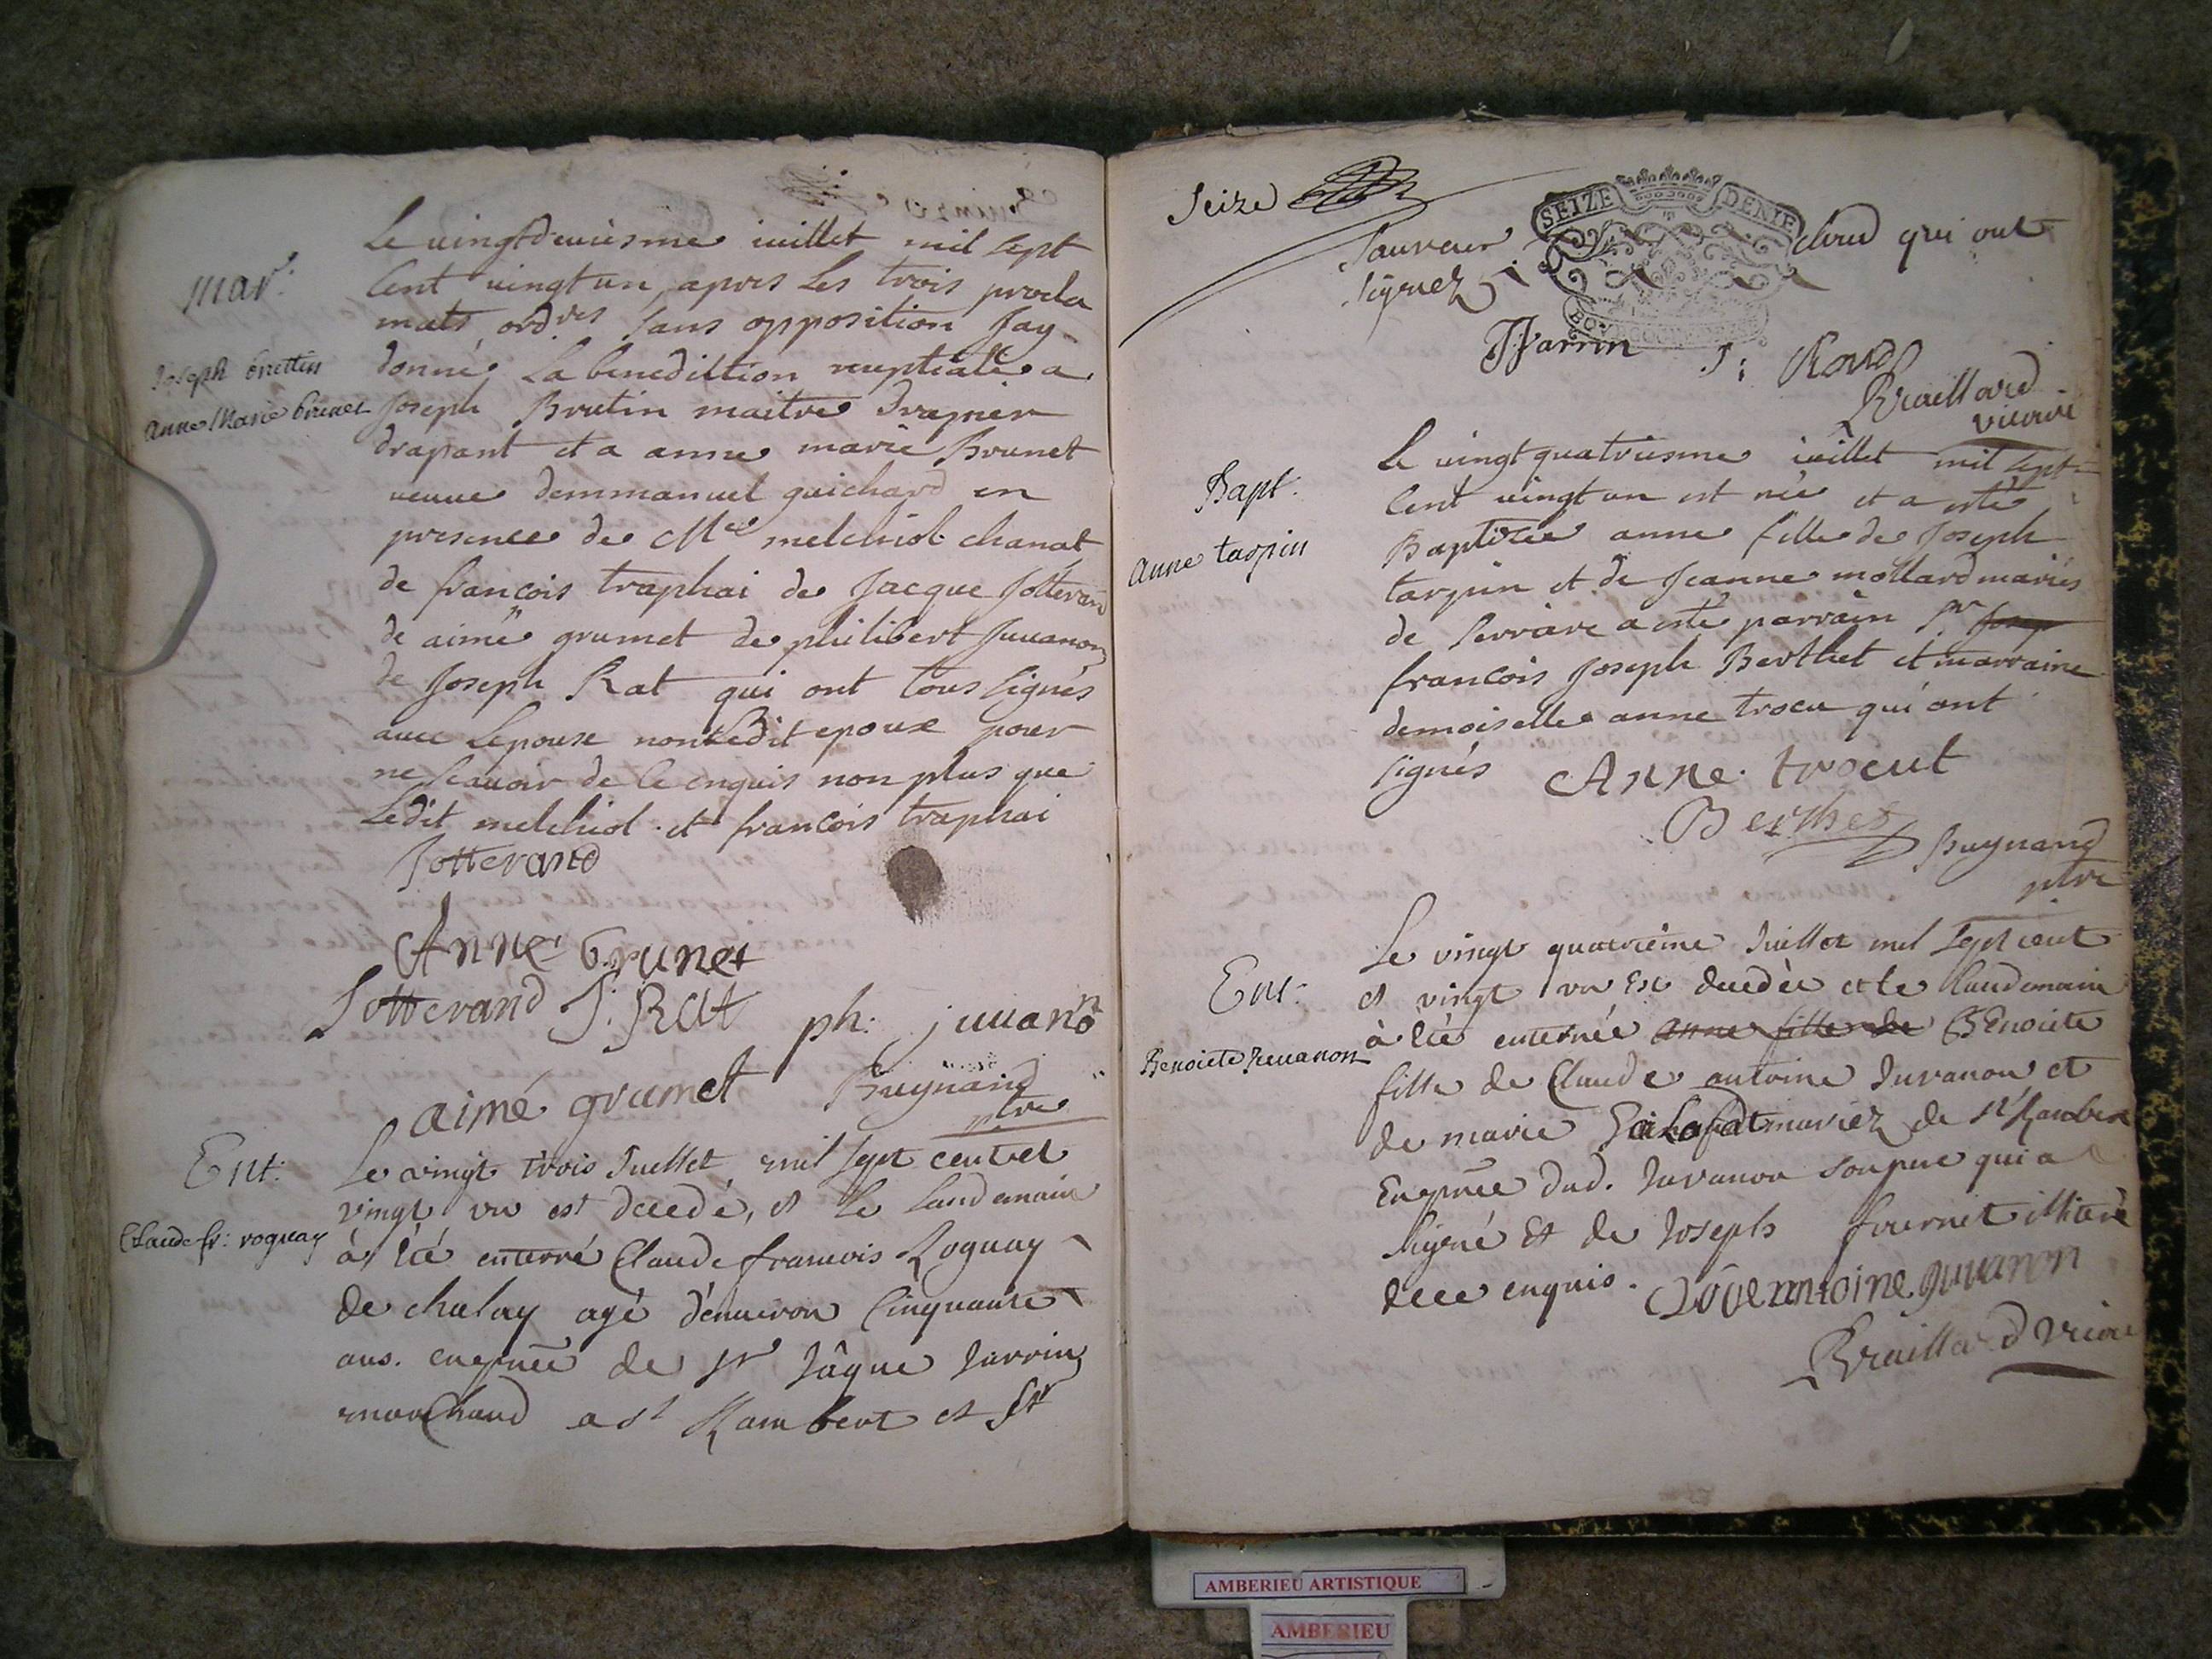 mar:
Joseph brettin
anne Marie brunet
Le uingtdeuiesme iuillet mil sept
Cent uingt un apres Les trois procla
mats ordres sans opposition Jay
donné La benediction nuptiale a
Joseph Brutin maitre drapier
drapant et a anne marie Brunet
ueuue demmanuel guichard en
presence de Mre melchiol chanat
de françois traphai de Jacque Jotterand
de aimé grumet de philibert Juuanon
de Joseph Rat qui ont tous signés
auec Lepouse non Ledit epoux pour
ne scauoir de ce enquis non plus que
Ledit melchiol et françois traphai
Jotterand
Anne brunet
Jotterand J. Rat ph: juuanon
aimé grumet Buynand
ptre
Ent:
Claude fr: roguay
Le vingt trois Juillet mil sept cent et
vingt un est decedé, et le landemain
à été enterré Claude francois Roguay
de chaley agé d'enuiron Cinquante
ans. en pnce de sr Jâque Jarrin
marchand a st Rambert et sr
Seize
SEIZE DENIE
BOVRGOGNE
Sauveur clerd qui ont
signez
JJarrin J: Ravd
Braillard
vicaire
Bapt.
Anne tarpin
Le uingt quatriesme iuillet mil sept
Cent uingt un est née et a esté
Baptisée anne fille de Joseph
tarpin et de Jeanne mollard mariés
de Serriere a esté parrain sr Josep
françois Joseph Berthet et marraine
demoiselle anne trocu qui ont
signés Anne trocut
Berthet Buynand
ptre
Ent:
Benoiete Juuanon
Le vingt quatrième Juillet mil sept cent
et vingt un Est decedée et le landemain
à été enterrée anne fille de Benoiete
fille de Claude antoine Juvanon et
de marie mariez de st Rambert
En pnce dud. Juvanon son pere qui a
signé Et de Joseph fournet illiteré
de ce enquis. Clôde antoine Juuanon
Braillard vicaire
AMBERIEU ARTISTIQUE
AMBERIEU